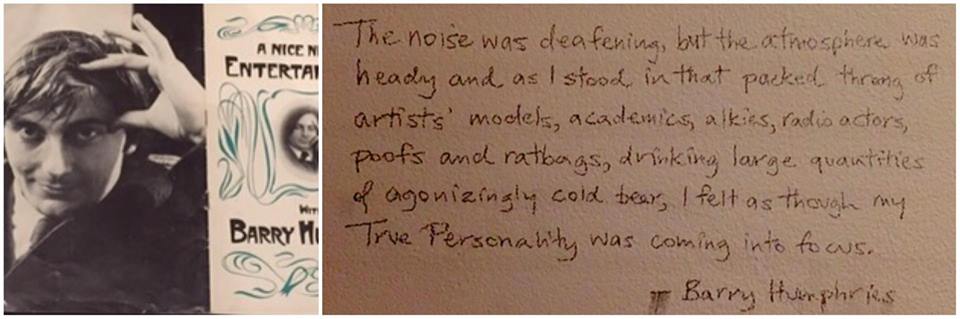 A NICE NI
ENTERTAI
WITH
BARRY HU
The noise was deafening, but the atmosphere was
heady and as I stood in that packed throng of
artists' models, academics, alkies, radio actors,
poofs and ratbags, drinking large quantities
of agonizingly cold bear, I felt as though my
True Personality was coming into focus.
— Barry Humphries